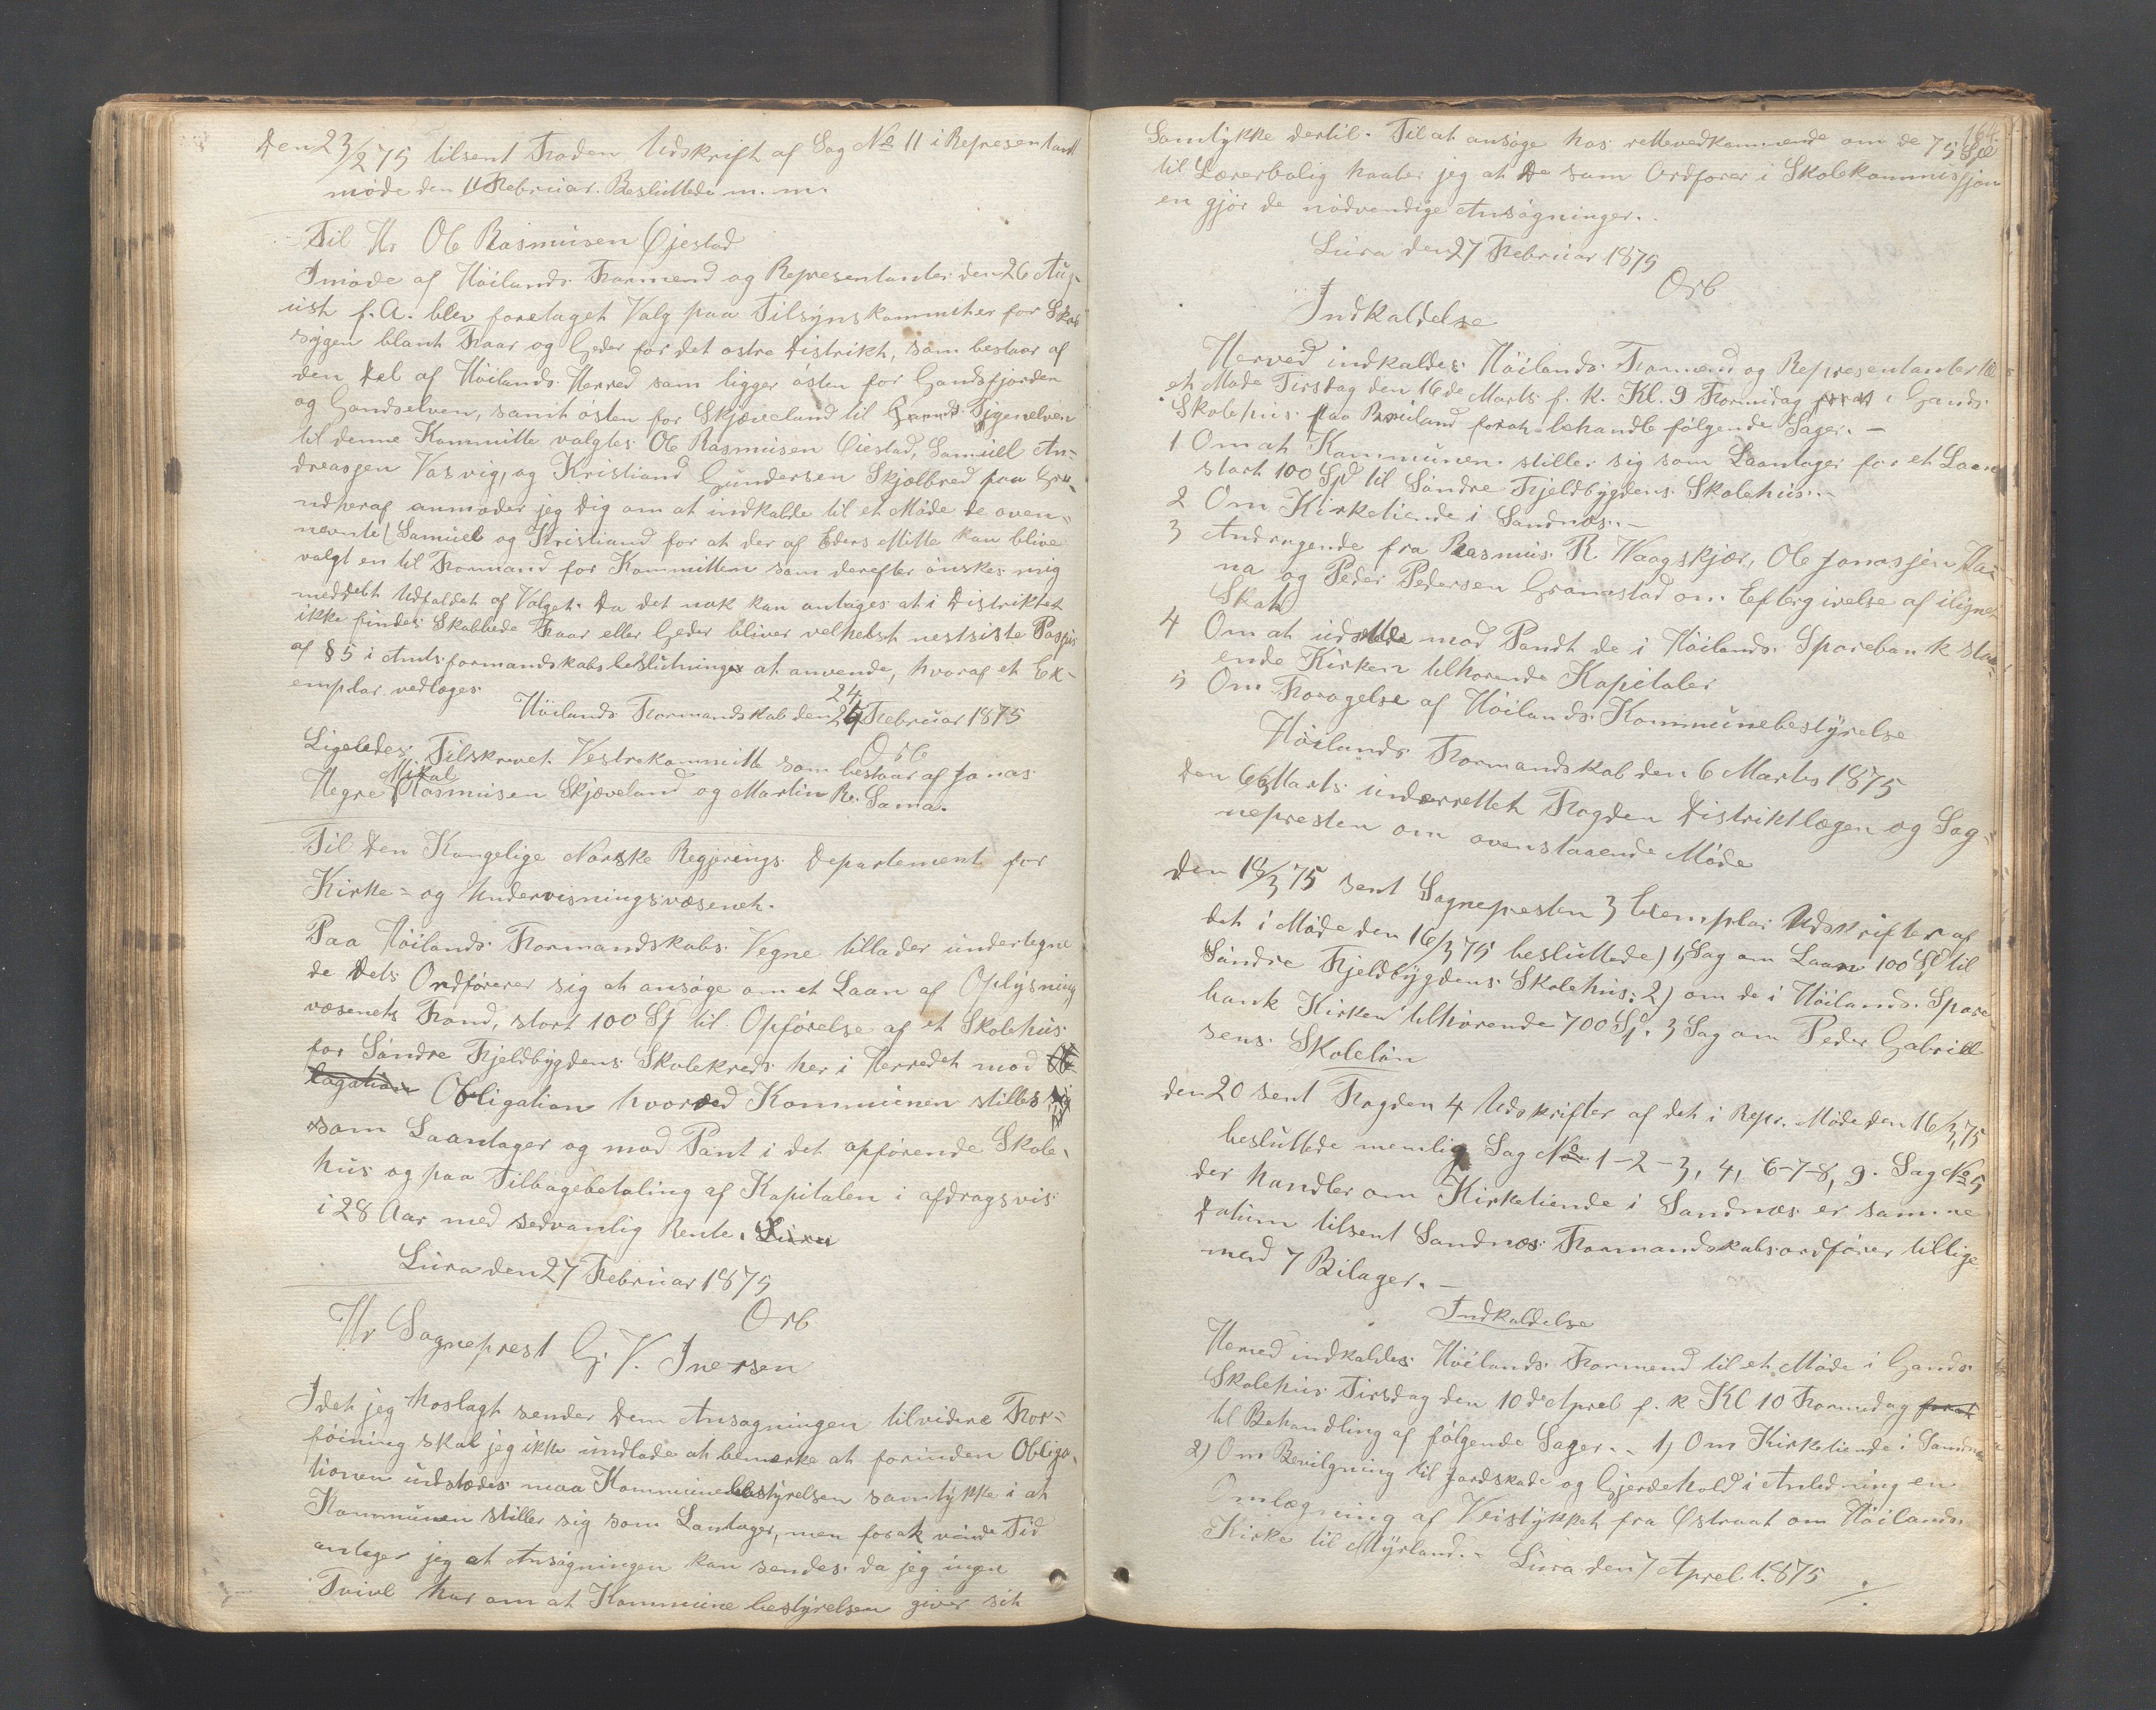 Den 23/2 75 tilsent Fogden Udskrift af Sag No 11 i Representant
møde den 11 Februar. Besluttede m. m.
Til Hr Ole Rasmusen Øjestad
I møde af Höilands Formend og Representanter den 26 Aug-
ust f. A. blev foretaget Valg paa Tilsynskommitteer for Skab
sygen blant Faar og Geder for det østre Distrikt, som bestaar af
den Del af Höilands Herred som ligger østen for Gandsfjorden
og Gandselven, samt østen for Skjæveland til Figenelven
til denne Kommitte valgtes Ole Rasmusen Öiestad, Samuel An-
dreassen Vasvig, og Kristiand Gundersen Skjælbred paa Gru-
ndheraf anmoder jeg Dig om at indkalde til et Møde de oven-
nevnte (Samuel og Kristiand for at der af Eders Mitte kan blive
valgt en til Formand for Kommitten som derefter ønskes mig
meddelt Udfaldet af Valget. Da det nok kan antages at i Distriktet
ikke findes Skabbede Faar eller Geder bliver velhelst nestsiste Passus
af § 5 i Amtsformandskabsbeslutninger at anvende, hvoraf et Ek-
emplar vedlages
Höilands Formandskab den 24 Februar 1875
Orb
Ligeledes Tilskrevet Vestrekommitte som bestaar af Jonas
Hegre Mikal Rasmusen Skjæveland og Martin R. Soma.
Til Den Kongelige Norske Regjerings Departement for
Kirke- og Undervisningsvæsenet.
Paa Höilands Formandskabs Vegne tillader undertegne
de Dets Ordförerer sig at ansøge om et Laan af Oplysning
væsenets Fond, stort 100 Sp til Opförelse af et Skolehus
for Söndre Fjeldbygdens Skolekreds her i Herredet mod Ob
lagation Obligation hvorved Kommunen stilles sig
som Laantager og mod Pant i det opførende Skole-
hus og paa Tilbagebetaling af Kapitalen i afdragsvis
i 28 Aar med sedvanlig Rente. Lura
Lura den 27 Februar 1875
Orb
Hr Sogneprest G. V. Iversen
Idet jeg hoslagt sender Dem Ansøgningen tilvidere For-
föining skal jeg ikke undlade at bemerke at forinden Obliga-
tionen udstædes maa Kommunebestyrelsen samtykke i at
Kommunen stiller sig som Lantager, men forat vinde Tid
antager jeg at Ansøgningen kan sendes da jeg ingen
Tvivl har om at Kommune bestyrelsen giver sit
164
Samtykke dertil. Til at ansøge hos rettevedkommende om de 75 Spd
til Lærerbolig haaber jeg at De som Ordfører i Skolekommissjon
en gjör de nödvendige Ansögninger.
Lura den 27 Februar 1875
Orb
Indkaldelse
Herved indkaldes Höilands Formend og Representanter til
et Møde Tirsdag den 16de Marts f. k. Kl. 9 Formidag forat i Gands
Skolehus paa Brueland forat behandle følgende Sager. -
1 Om at Kommunen stiller sig som Laantager for et Laan
stort 100 Spd til Söndre Fjeldbygdens Skolehus. -
2 Om Kirketiende i Sandnæs. -
3 Andragende fra Rasmus R. Vaagskjær, Ole Jonassen Ha-
na og Peder Pedersen Gramstad om Eftergivelse af ilignet
Skat
4 Om at udsætte mod Pandt de i Höilands Sparebank staa-
ende Kirken tilhørende Kapitaler
5 Om Forøgelse af Höilands Kommunebestyrelse
Höilands Formandskab den 6 Marts 1875
Den 6 Marts underrettet Fogden Distriktlægen og Sog-
nepresten om ovenstaaende Møde
Den 18/3 75 sent Sognepresten 3 Exemplar Udskrifter af
det i Møde den 16/3 75 besluttede) 1) Sag om Laan 100 Spd til
Söndre Fjeldbygdens Skolehus; 2) om de i Höilands Spare
bank Kirken tilhørende 700 Sp. 3 Sag om Peder Gabriel
sens Skolelön
den 20 sent Fogden 4 Udskrifter af det i Repr. Møde den 16/3 75
besluttede nemlig Sag No 1-2-3, 4, 6-7-8, 9. Sag No 5
der handler om Kirketiende i Sandnæs er samme
Datum tilsent Sandnæs Formandskabsordförer tillige
med 7 Bilager. -
Indkaldelse
Herved indkaldes Höilands Formend til et Møde i Gands
Skolehus Tirsdag den 10de Aprel f. k Kl 10 Formidag forat
til Behandling af følgende Sager. - 1) Om Kirketiende i Sandnæs
2) Om Bevilgning til Jordskade og Gjerdehold i Anledning en
Omlægning af Veistykket fra Østraat om Höilands
Kirke til Myrland. - Lura den 7 Aprel 1875
./.